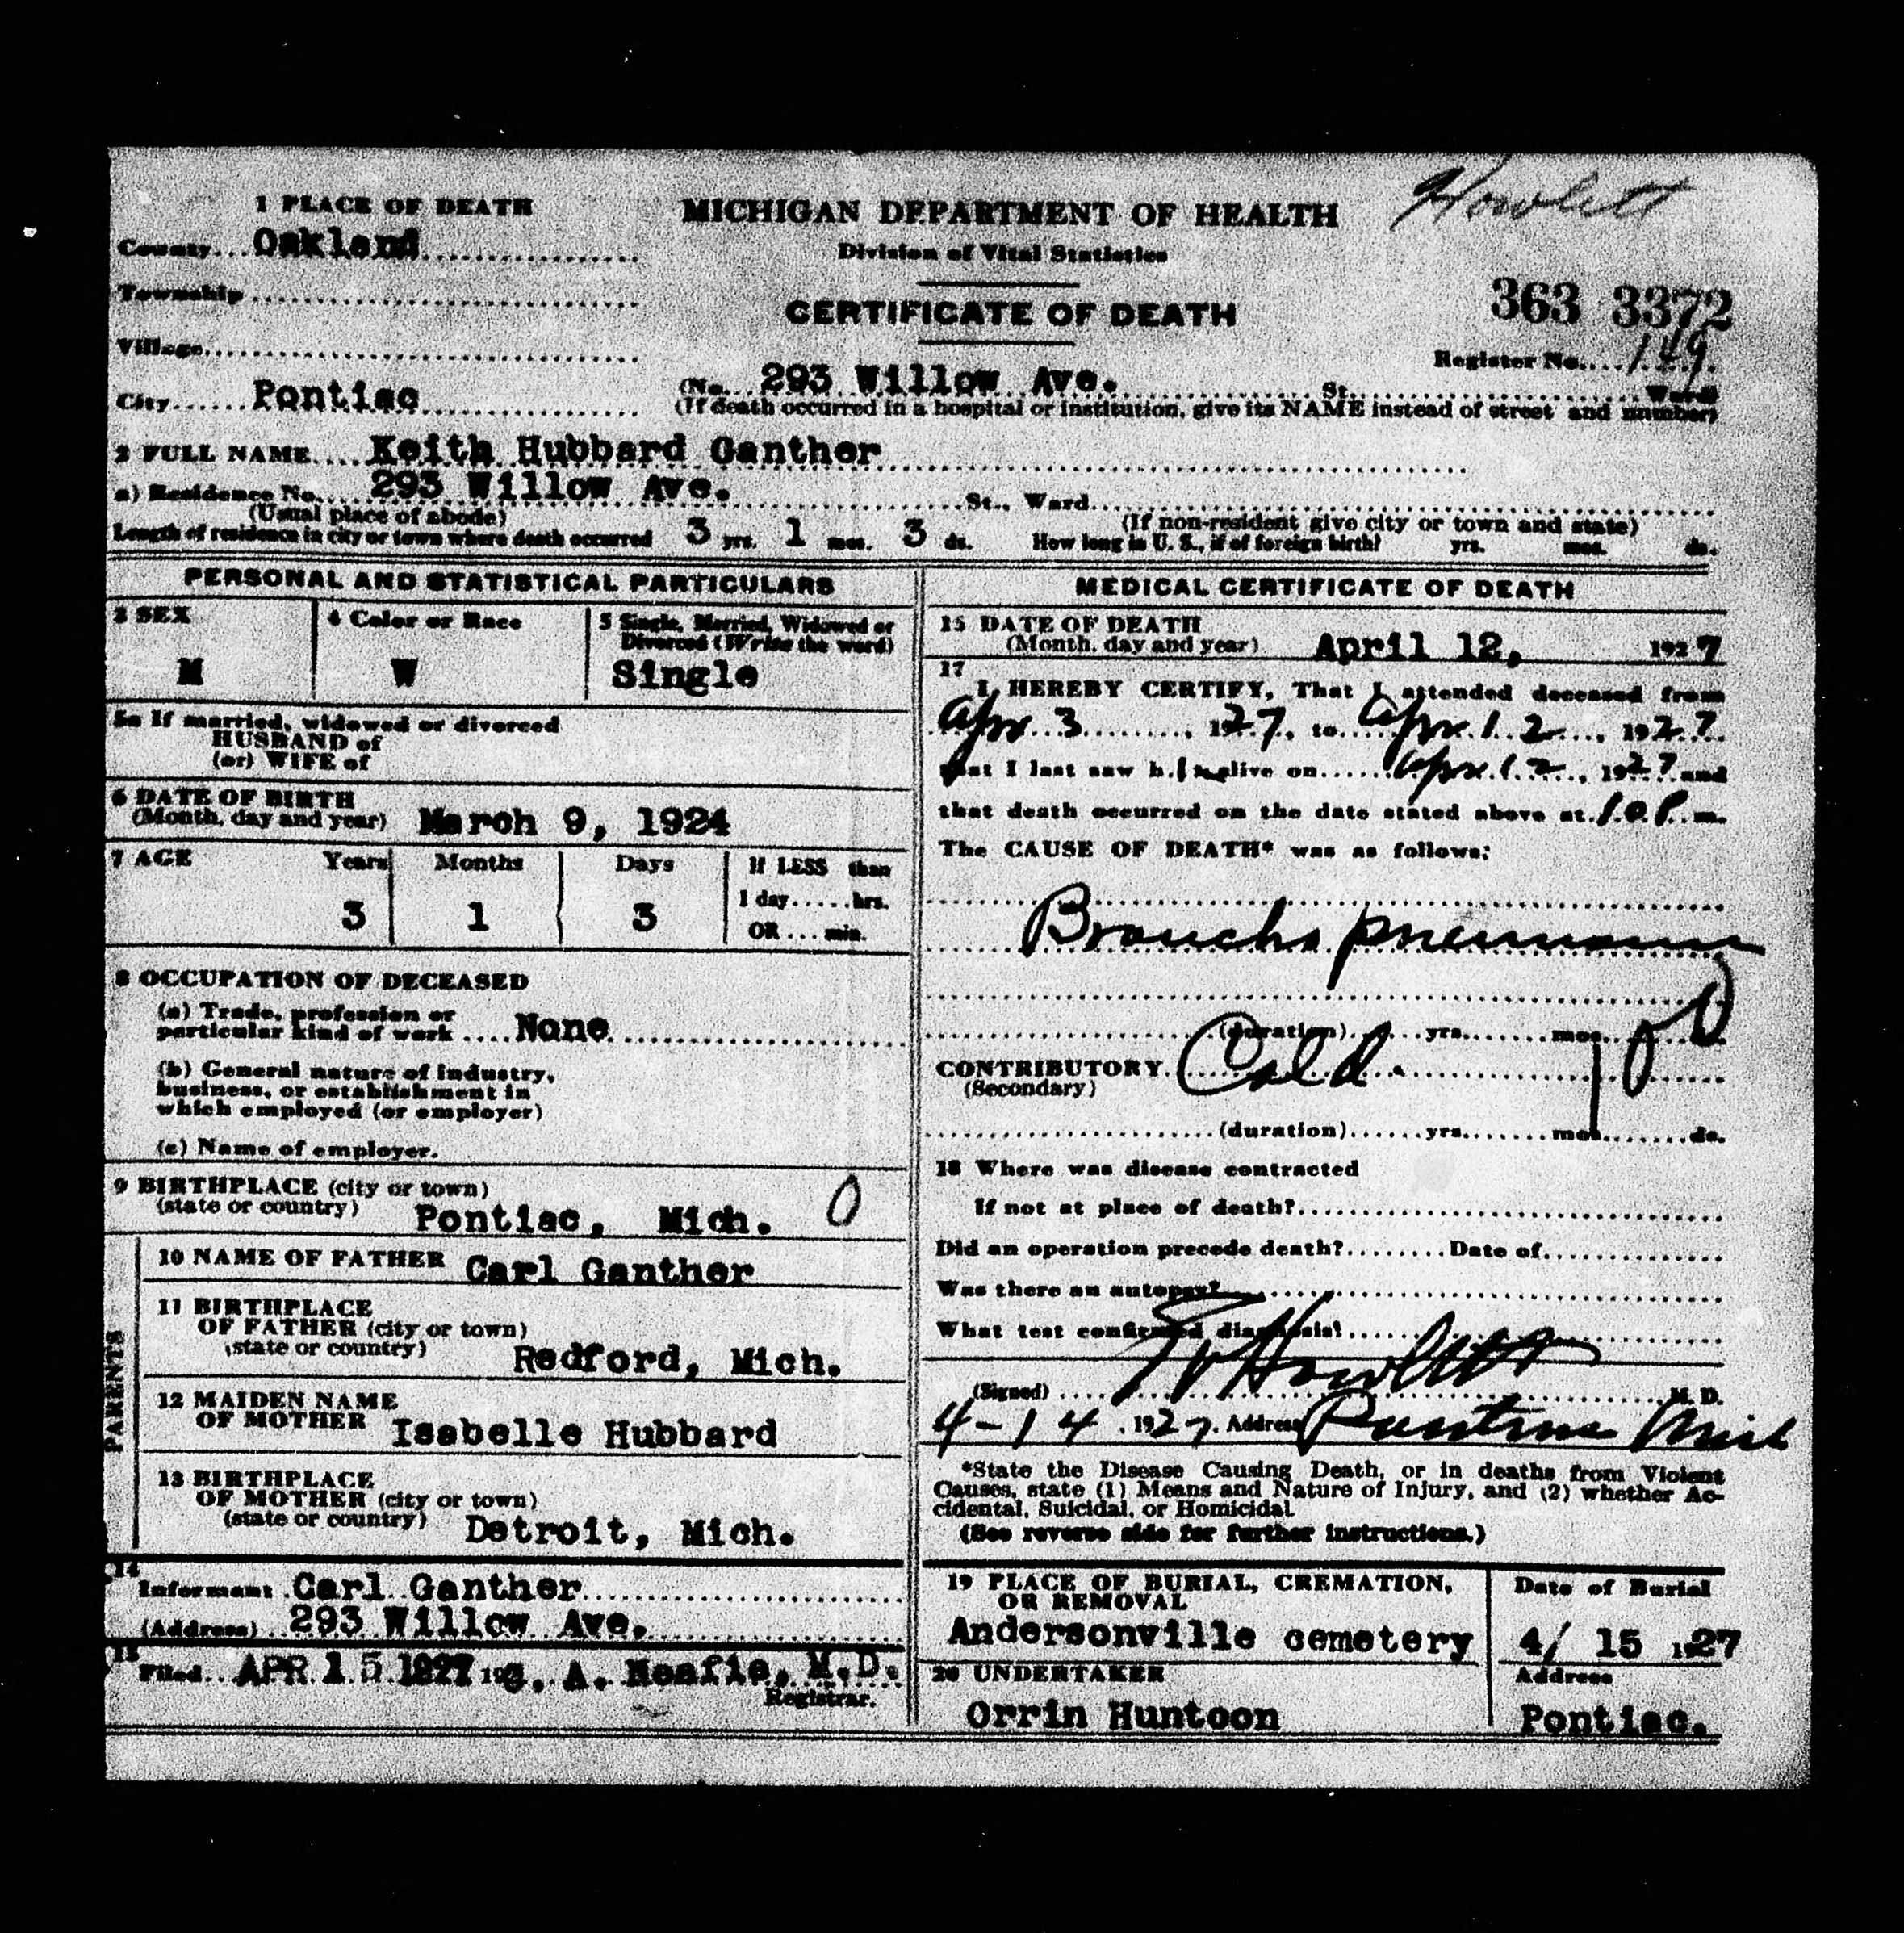 Howlett
1 PLACE OF DEATH
MICHIGAN DEPARTMENT OF HEALTH
County....Oakland
Division of Vital Statistics
Township
CERTIFICATE OF DEATH
363 3372
Village
Register No....149
City......Pontiac
(No....293 Willow Ave. St. Ward)
(If death occurred in a hospital or institution, give its NAME instead of street and number)
2 FULL NAME....Keith Hubbard Ganther
a) Residence No....293 Willow Ave. St., Ward
(Usual place of abode)
(If non-resident give city or town and state)
Length of residence in city or town where death occurred 3 yrs. 1 mos. 3 ds. How long in U. S., if of foreign birth? yrs. mos. ds.
PERSONAL AND STATISTICAL PARTICULARS
3 SEX
M
4 Color or Race
W
5 Single, Married, Widowed or
Divorced (Write the word)
Single
5a If married, widowed or divorced
HUSBAND of
(or) WIFE of
6 DATE OF BIRTH
(Month, day and year) March 9, 1924
7 AGE Years Months Days If LESS than
1 day......hrs.
3 1 3
OR....min.
8 OCCUPATION OF DECEASED
(a) Trade, profession or
particular kind of work ....None
(b) General nature of industry,
business, or establishment in
which employed (or employer)
(c) Name of employer.
9 BIRTHPLACE (city or town)
(state or country) Pontiac, Mich. 0
PARENTS
10 NAME OF FATHER Carl Ganther
11 BIRTHPLACE
OF FATHER (city or town)
(state or country) Redford, Mich.
12 MAIDEN NAME
OF MOTHER Isabelle Hubbard
13 BIRTHPLACE
OF MOTHER (city or town)
(state or country) Detroit, Mich.
14
Informant Carl Ganther
(Address) 293 Willow Ave.
15
Filed APR 15 1927 192 A. Neafie, M.D.
Registrar.
MEDICAL CERTIFICATE OF DEATH
15 DATE OF DEATH
(Month, day and year) April 12, 1927
17
I HEREBY CERTIFY, That I attended deceased from
Apr 3, 1927, to Apr 12, 1927
that I last saw h im alive on Apr 12, 1927 and
that death occurred on the date stated above at 10 P. m.
The CAUSE OF DEATH* was as follows:
Broncho pneumonia
(duration) yrs. mos. 10
CONTRIBUTORY Cold
(Secondary)
(duration) yrs. mos. ds.
18 Where was disease contracted
If not at place of death?
Did an operation precede death?........Date of
Was there an autopsy?
What test confirmed diagnosis?
(Signed) Howlett M. D.
4-14, 1927. Address Pontiac Mich
*State the Disease Causing Death, or in deaths from Violent
Causes, state (1) Means and Nature of Injury, and (2) whether Ac-
cidental, Suicidal, or Homicidal.
(See reverse side for further instructions.)
19 PLACE OF BURIAL, CREMATION,
OR REMOVAL
Andersonville cemetery
Date of Burial
4/ 15 1927
20 UNDERTAKER
Orrin Huntoon
Address
Pontiac.